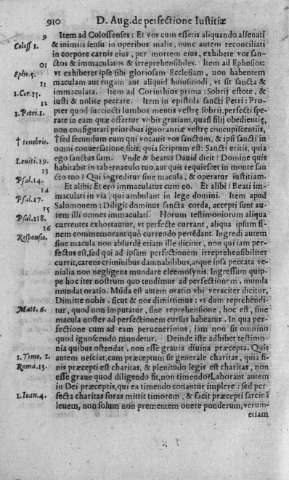 910 D. Aug. de perfectione Iustitiæ
9
Coloss 1. Item ad Colossenses: Et vos cum essetis aliquando alienati
& inimici sensu in operibus malis, nunc autem reconciliati
in corpore carnis eius, per mortem eius, exhibete vos san-
10
ctos & immaculatos & irreprehensibiles. Item ad Ephesios:
Ephe. 5. vt exhiberet ipse sibi gloriosam Ecclesiam, non habentem
11
maculam aut rugam, aut aliquid eiusmodi, vt sit sancta &
1. Cor. 15. immaculata. Item ad Corinthios prima: Sobrij estote, &
12
iusti & nolite peccare. Item in epistola sancti Petri: Pro-
1. Petri 1. pter quod succincti lumbos mentis vestræ sobrij, perfectè spe-
rate in eam quæ offertur vobis gratiam, quasi filij obedientiæ,
non configurati prioribus ignorantiæ vestræ concupiscentijs,
† tenebris. sed secundum eum qui vocauit vos sanctum, & ipsi sancti in
omni conuersatione sitis, quia scriptum est: Sancti eritis, quia
Leuiti. 19. ego sanctus sum. Vnde & beatus Dauid dicit: Domine quis
13
habitabit in tabernaculo tuo, aut quis requiescet in monte san-
Psal. 14. cto tuo? Qui ingreditur sine macula, & operatur iustitiam.
14
Et alibi: Et ero immaculatus cum eo. Et alibi: Beati im-
Psal. 17. maculati in via, qui ambulant in lege domini. Item apud
15
Salomonem: Diligit dominus sancta corda, accepti sunt au-
Psal. 118. tem illi omnes immaculati. Horum testimoniorum aliqua
16
currentes exhortantur, vt perfectè currant, aliqua ipsum fi-
Responsio. nem commemorant, quo currendo perueniant. Ingredi autem
sine macula non absurdè etiam ille dicitur, non qui iam per-
fectus est, sed qui ad ipsam perfectionem irreprehensibiliter
currit, carens criminibus damnabilibus, atque ipsa peccata ve-
nialia non negligens mundare eleemosynis. Ingressum quip-
pe hoc iter nostrum quo tendimus ad perfectionem, munda
mundat oratio. Munda est autem oratio vbi veraciter dicitur,
Dimitte nobis, sicut & nos dimittimus: vt dum reprehendi-
Matt. 6. tur, quod non imputatur, sine reprehensione, hoc est, sine
macula noster ad perfectionem cursus habeatur. In qua per-
fectione cum ad eam peruenerimus, iam non sit omnino
quod ignoscendo mundetur. Deinde iste adhibet testimo-
nia quibus ostendat, non esse grauia diuina præcepta. Quis
1. Timo. 1. autem nesciat, cum præceptum sit generale charitas, quia fi-
Roma. 13. nis præcepti est charitas, & plenitudo legis est charitas, non
esse graue quod diligendo fit, non timendo? Laborant autem
in Dei præceptis, qui ea timendo conantur implere: sed per-
1. Ioan. 4. fecta charitas foras mittit timorem, & facit præcepti sarcinam
leuem, non solum non prementem onere ponderum, verum-
etiam